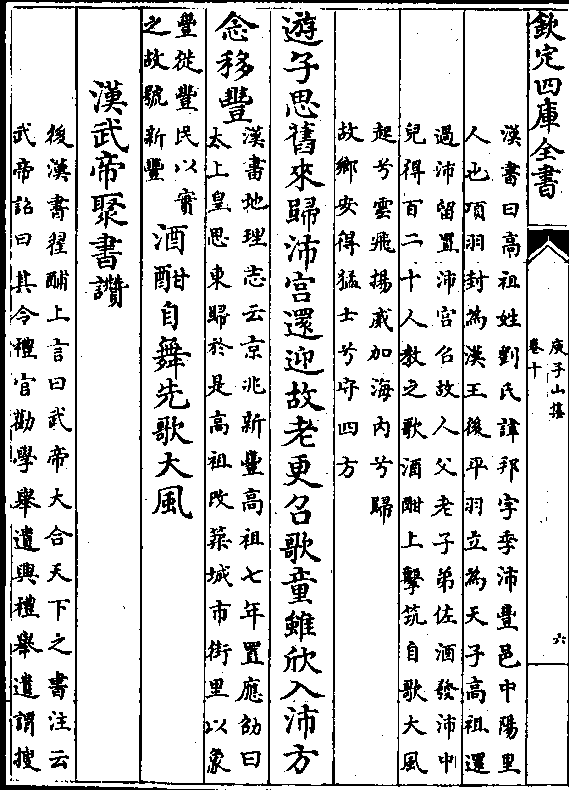 欽定四庫全書
庾子山集
卷十
六
漢書曰高祖姓劉氏諱邦字季沛豐邑中陽里
人也項羽封為漢王後平羽立為天子高祖還
過沛留置沛宮召故人父老子弟佐酒發沛中
兒得百二十人教之歌酒酣上擊筑自歌大風
起兮雲飛揚威加海內兮歸
故鄉安得猛士兮守四方
遊子思舊來歸沛宮還迎故老更召歌童雖欣入沛方
念移豐
漢書地理志云京兆新豐高祖七年置應劭曰
太上皇思東歸於是高祖改築城市街里以象
豐徙豐民以實
之故號新豐
酒酣自舞先歌大風
漢武帝聚書讚
後漢書翟酺上言曰武帝大合天下之書注云
武帝詔曰其令禮官勸學舉遺興禮舉遺謂搜